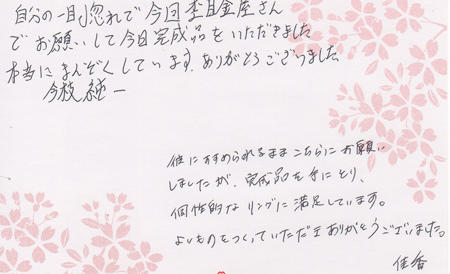 自分の一目惚れで今回杢目金屋さん
でお願いして今日完成品をいただきました
本当にまんぞくしています。ありがとうございました
今枝 純一
彼にすすめられるまま こちらに お願い
しましたが、完成品を手にとり、
個性的な リングに 満足しています。
よいものをつくっていただき ありがとうございました。
佳香